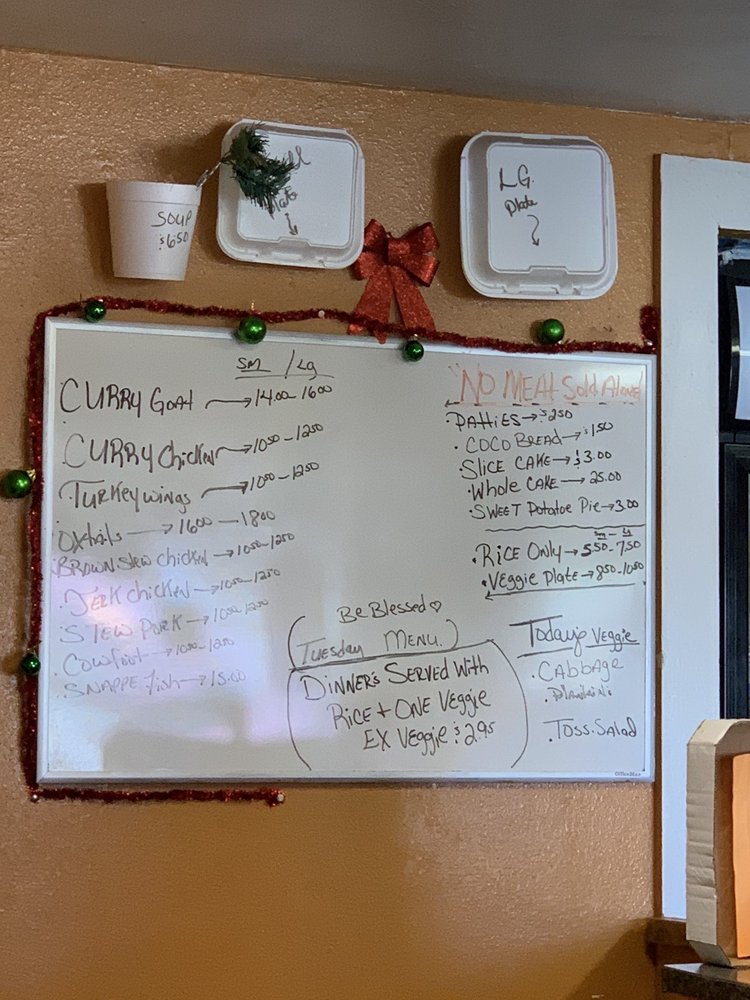 SOUP
$6.50
Plate
LG.
Plate
SM / Lg
CURRY Goat → 14.00 - 16.00
CURRY Chicken → 10.50 - 12.50
Turkey wings → 10.50 - 12.50
Oxtails → 16.00 - 18.00
BROWN Stew chicken → 10.50 - 12.50
JERK chicken → 10.50 - 12.50
STEW PORK → 10.50 - 12.50
Cowfoot → 10.50 - 12.50
SNAPPE fish → 15.00
"NO MEAT Sold Alone"
·PattiES → $2.50
·COCO BREAD → $1.50
·SLICE CAKE → $3.00
·Whole CAKE → 25.00
·SWEET Potatoe Pie → 3.00
sm - Lg
·RICE ONLY → 5.50 - 7.50
·VEGGIE PLATE → 8.50 - 10.50
Be Blessed ♡
Tuesday MENU.
DINNER'S SERVED With
RICE + ONE Veggie
EX Veggie $2.95
Today's VEGGIE
·CABBAGE
·Plantain.
·TOSS.Salad
OfficeMax